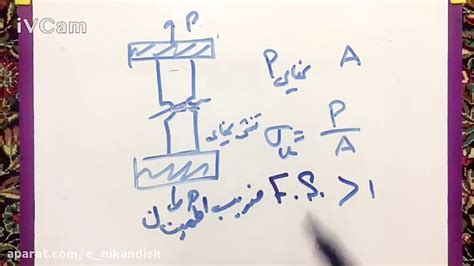 iVCam
P.
P نهایی A
تنش نهایی σu = P/A
P
ضریب اطمینان F.S. >1
aparat.com/e_nikandish